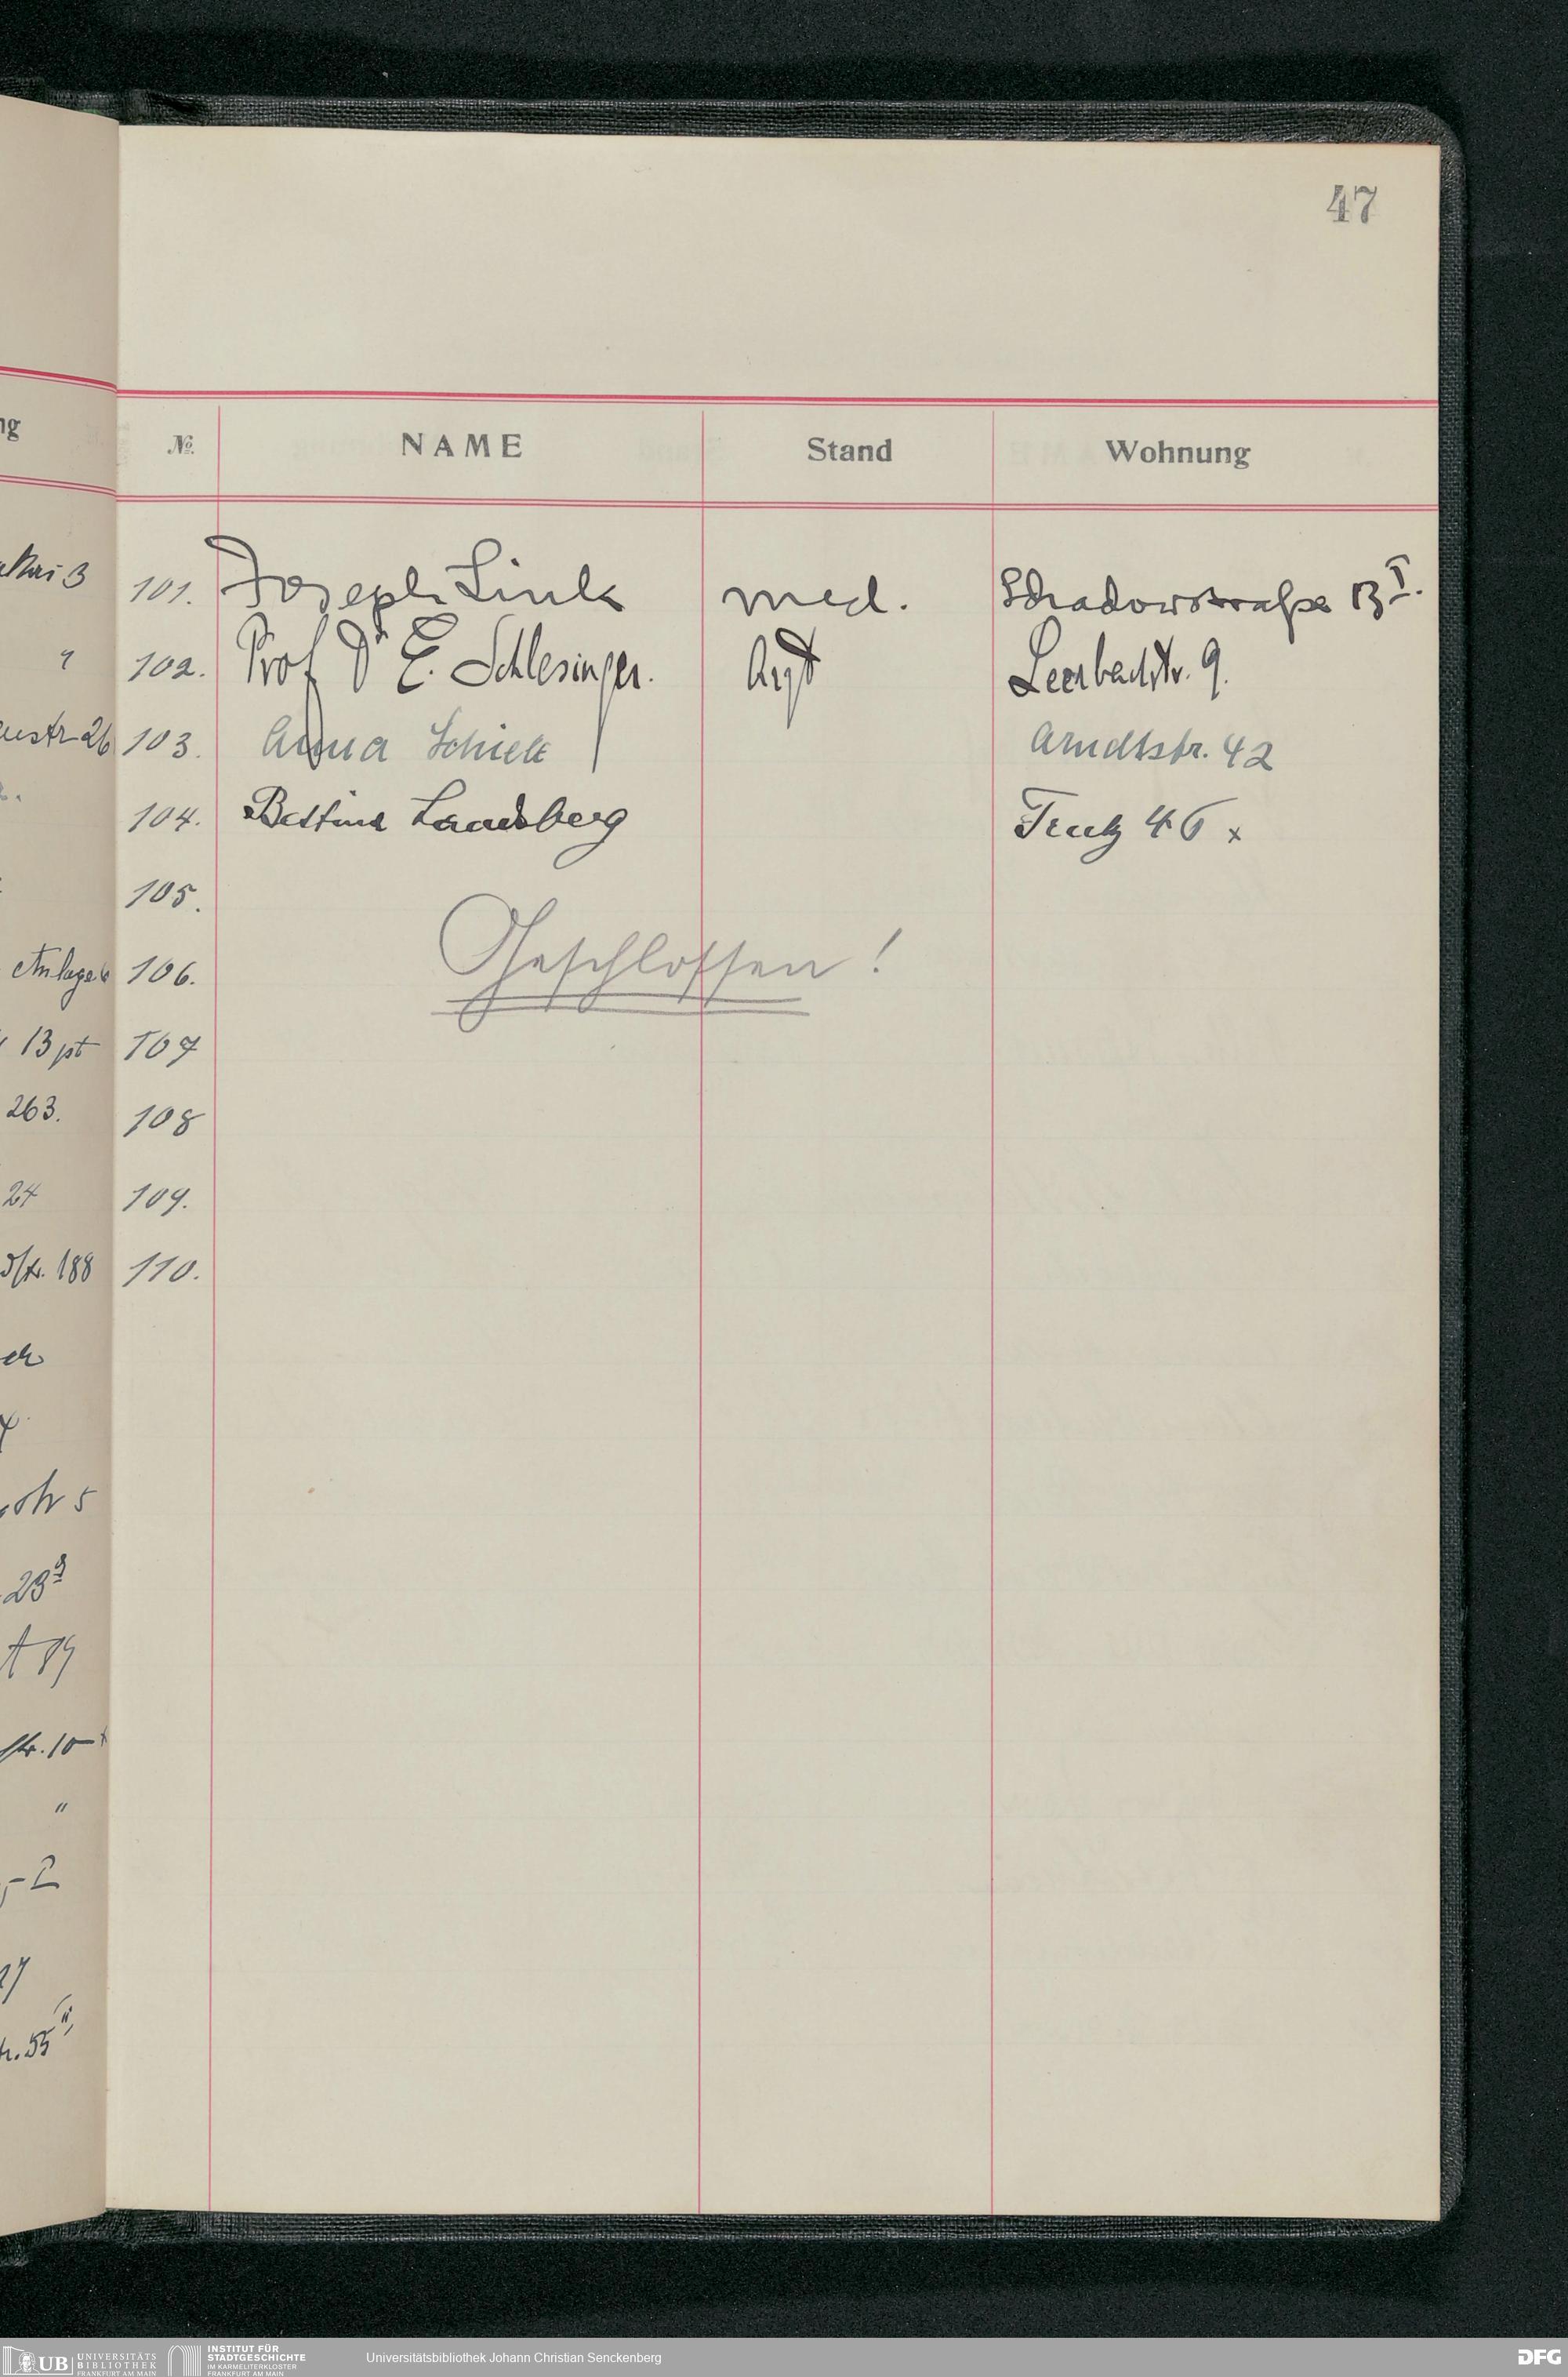 47
№ NAME Stand Wohnung
101. Joseph Link med. Schadowstraße 13 I.
102. Prof Dr E. Schlesinger. Arzt Leerbachstr. 9.
103. Anna Schiele Arndtstr. 42
104. Bettina Landsberg Trutz 46 x
105.
Geschlossen!
106.
107
108
109.
110.
ng
26
Anlage
13 pt
263.
24
188
str 5
23
str. 10
"
27
55
UB UNIVERSITÄTS
BIBLIOTHEK
FRANKFURT AM MAIN
INSTITUT FÜR
STADTGESCHICHTE
IM KARMELITERKLOSTER
FRANKFURT AM MAIN
Universitätsbibliothek Johann Christian Senckenberg
DFG